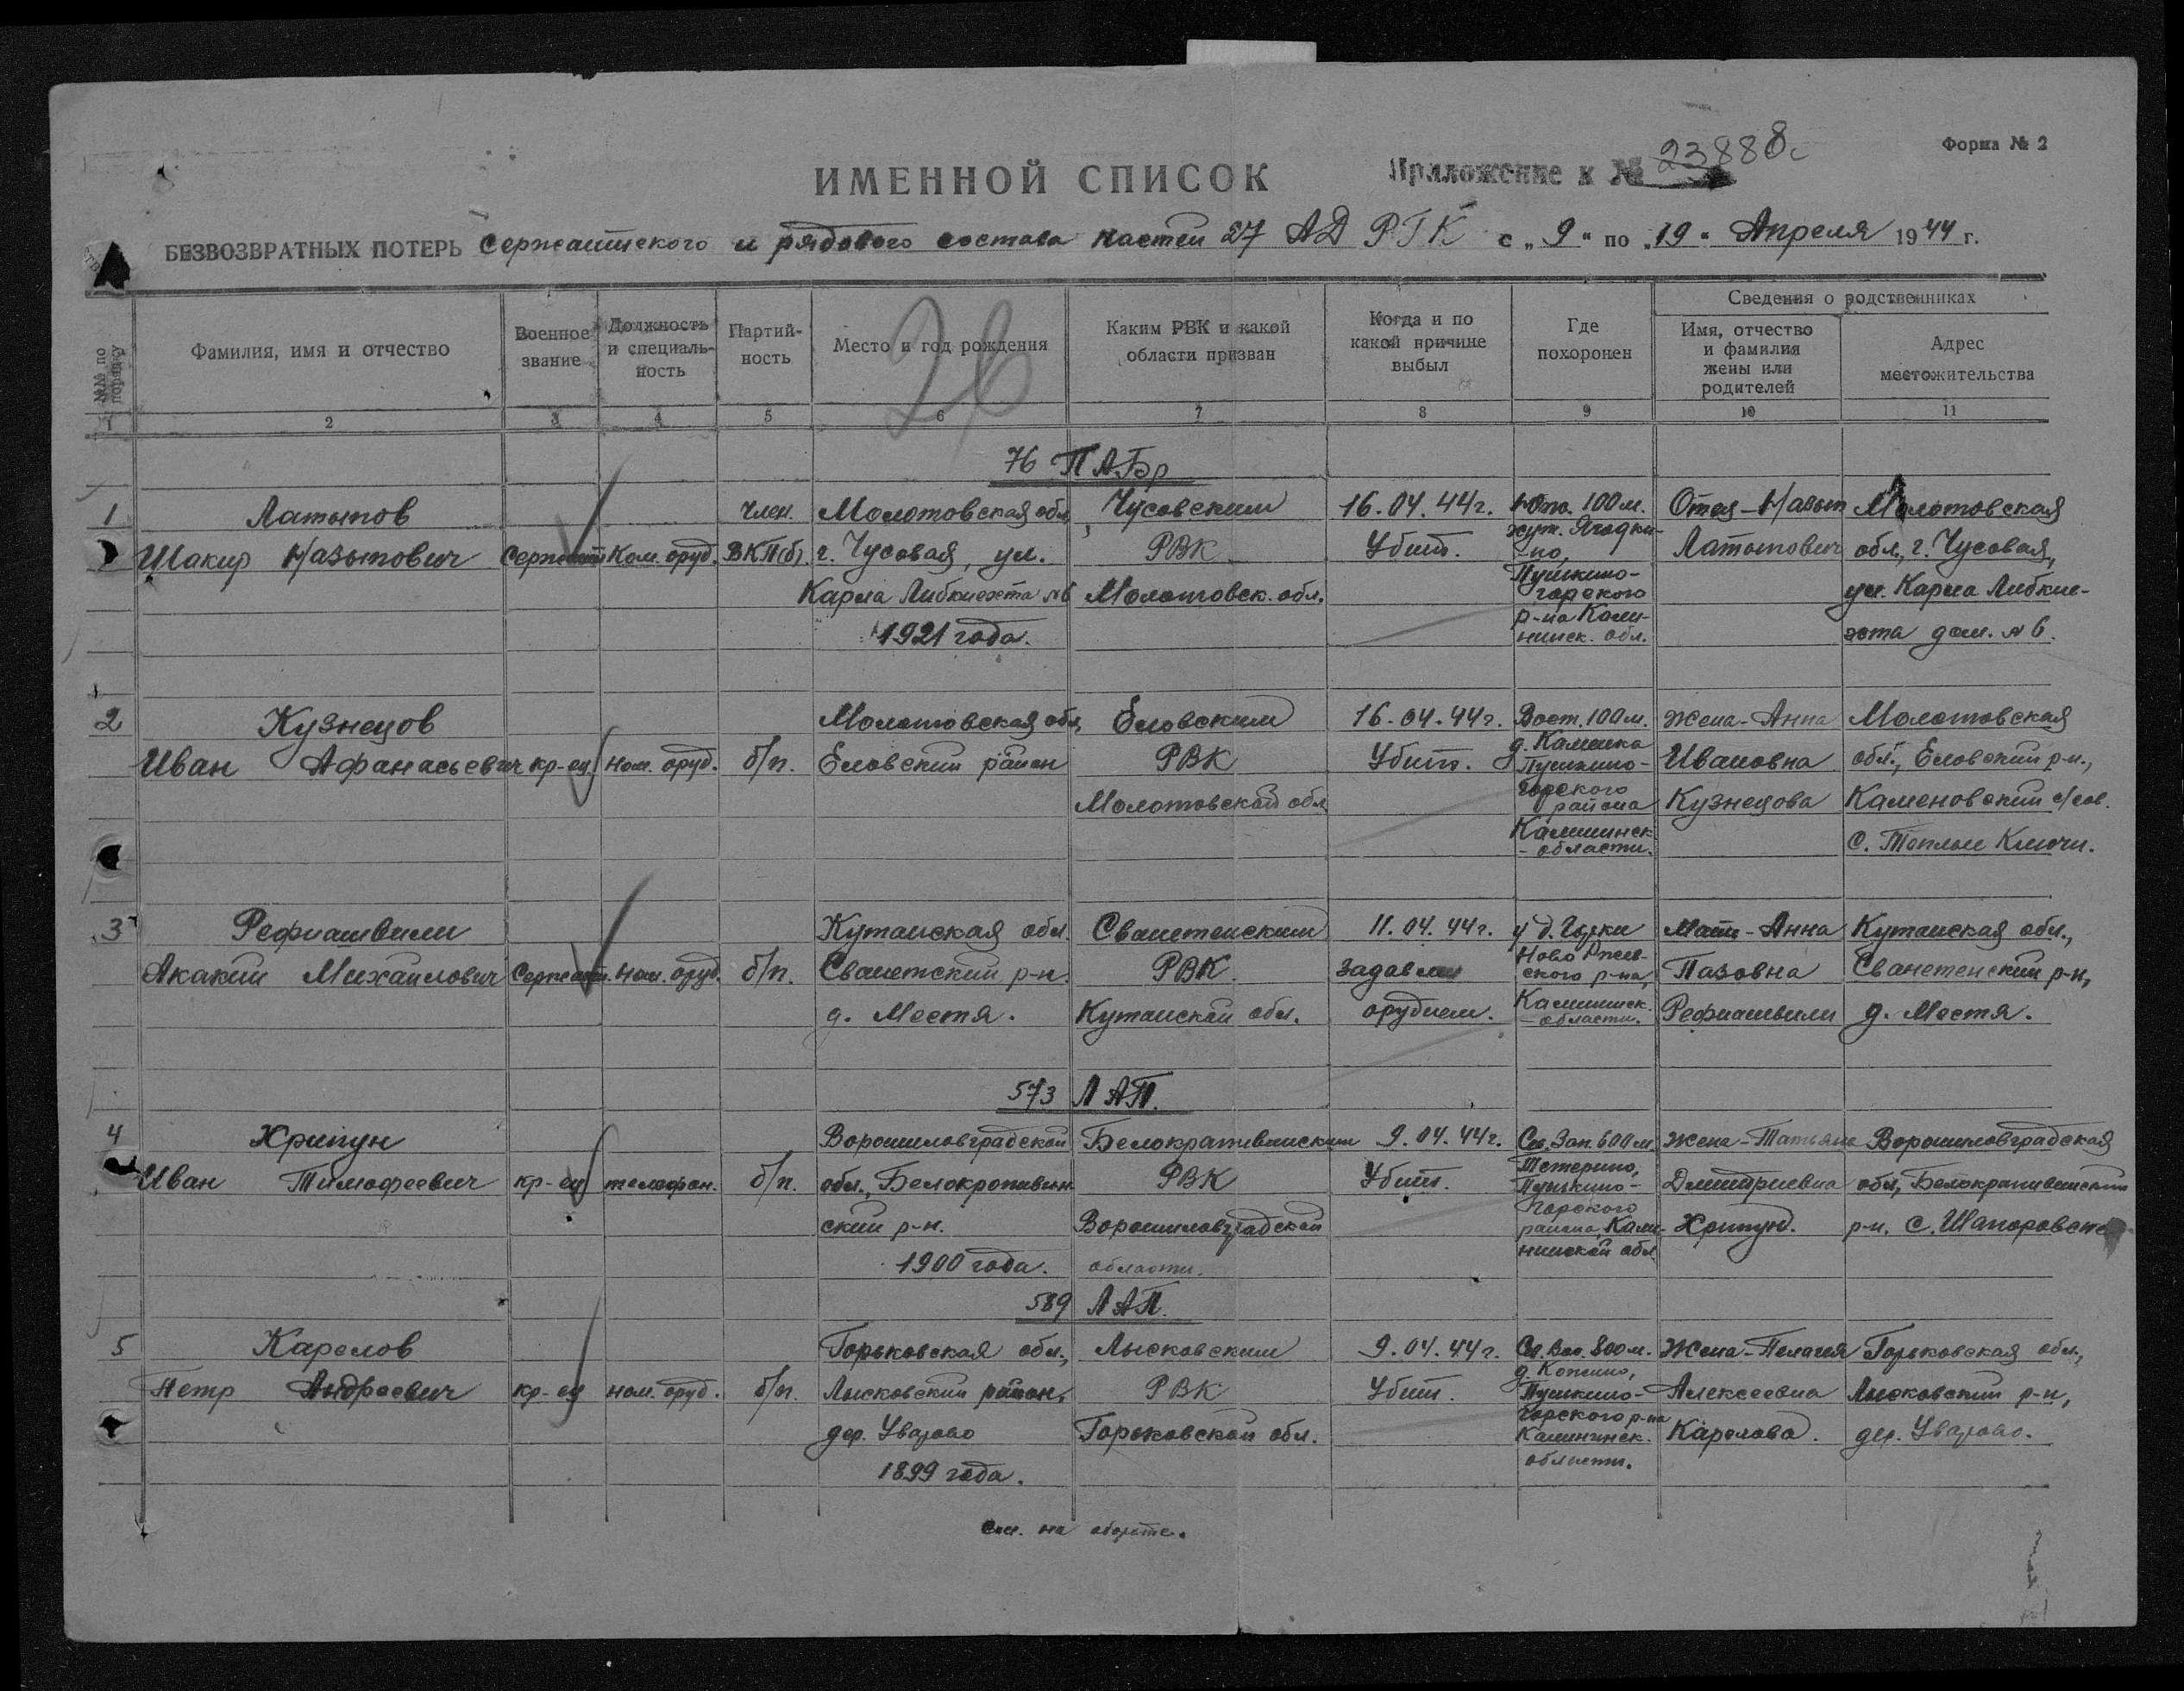 Форма № 2
ИМЕННОЙ СПИСОК
Приложение к № 23888с
БЕЗВОЗВРАТНЫХ ПОТЕРЬ Сержантского и рядового состава частей 27 АД РГК с „9" по „19" Апреля 1944 г.
№№ по порядку
Фамилия, имя и отчество
Военное звание
Должность и специаль-ность
Партий-ность
Место и год рождения
Каким РВК и какой области призван
Когда и по какой причине выбыл
Где похоронен
Сведения о родственниках
Имя, отчество и фамилия жены или родителей
Адрес местожительства
1 2 3 4 5 6 7 8 9 10 11
26
76 ПАБр
1 Латыпов член. Молотовская обл. Чусовским 16.04.44г. Юж. 100м. Отец-Назып Молотовская
Шакир Назыпович Сержант Ком. оруд. ВКП(б). г. Чусовая, ул. РВК Убит. хут. Ягодки- Латыпович обл., г. Чусовая,
-но,
Карла Либкнехта №6 Молотовск. обл. Пушкино- ул. Карла Либкне-
горского
1921 года. р-на Кали- хта дом. №6.
нинск. обл.
2 Кузнецов Молотовская обл, Еловским 16.04.44г. Вост. 100м. жена-Анна Молотовская
Иван Афанасьевич кр-ец. ном. оруд. б/п. Еловский район РВК Убит. д. Каменка Ивановна обл., Еловский р-н.,
Пушкино-
Молотовской обл горского Кузнецова Каменовский с/сов.
района
Калининск с. Теплые Ключи.
- области.
3 Рефиашвили Кутаиская обл. Сванетенским 11.04.44г. у д. Мать-Анна Кутаиская обл.,
Акакий Михайлович Сержант. Ном. оруд. б/п. Сванетский р-н. РВК. задавлен Ново Ржев- Пазовна Сванетенский р-н,
ского р-на,
д. Местя. Кутаиской обл. орудием. Калининск. Рефиашвили д. Местя.
- области.
573 ЛАП.
4 Хрипун Ворошиловградской Белокративинским 9.04.44г. Св. Зап. 600м. жена-Татьяна Ворошиловградская
Иван Тимофеевич кр-ец телефон. б/п. обл., Белокропивин РВК Убит. Тетерино, Дмитриевна обл, Белокрапивинский
Пушкино-
ский р-н. Ворошиловградской горского Хрипун. р-н. с. Шапоровка
района, Кали-
1900 года. области. нинской обл.
589 ЛАП.
5 Карелов Горьковская обл., Лысковским 9.04.44г. Св. Вос. 800м. жена-Пелагея Горьковская обл.,
Петр Андреевич кр-ец ном. оруд. б/п. Лысковский район, РВК Убит. д. Копино, Алексеевна Лысковский р-н,
Пушкино-
дер. Уварово Горьковской обл. горского р-на Карелова. дер. Уварово.
Калининск.
1899 года. области.
см. на обороте.